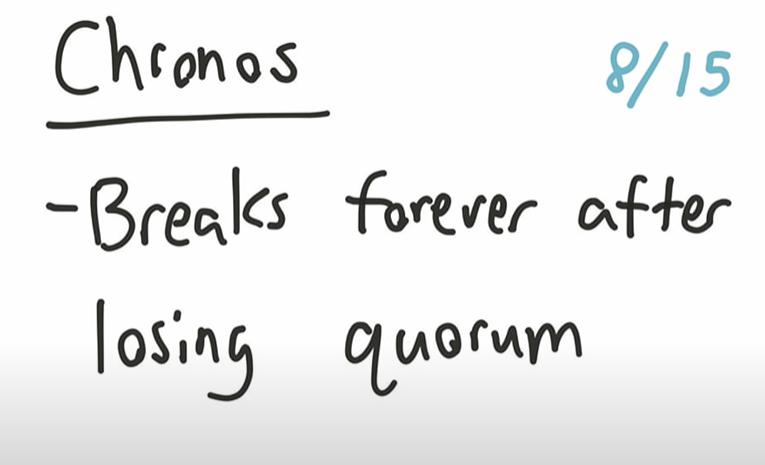 Chronos
8/15
-Breaks forever after
losing quorum